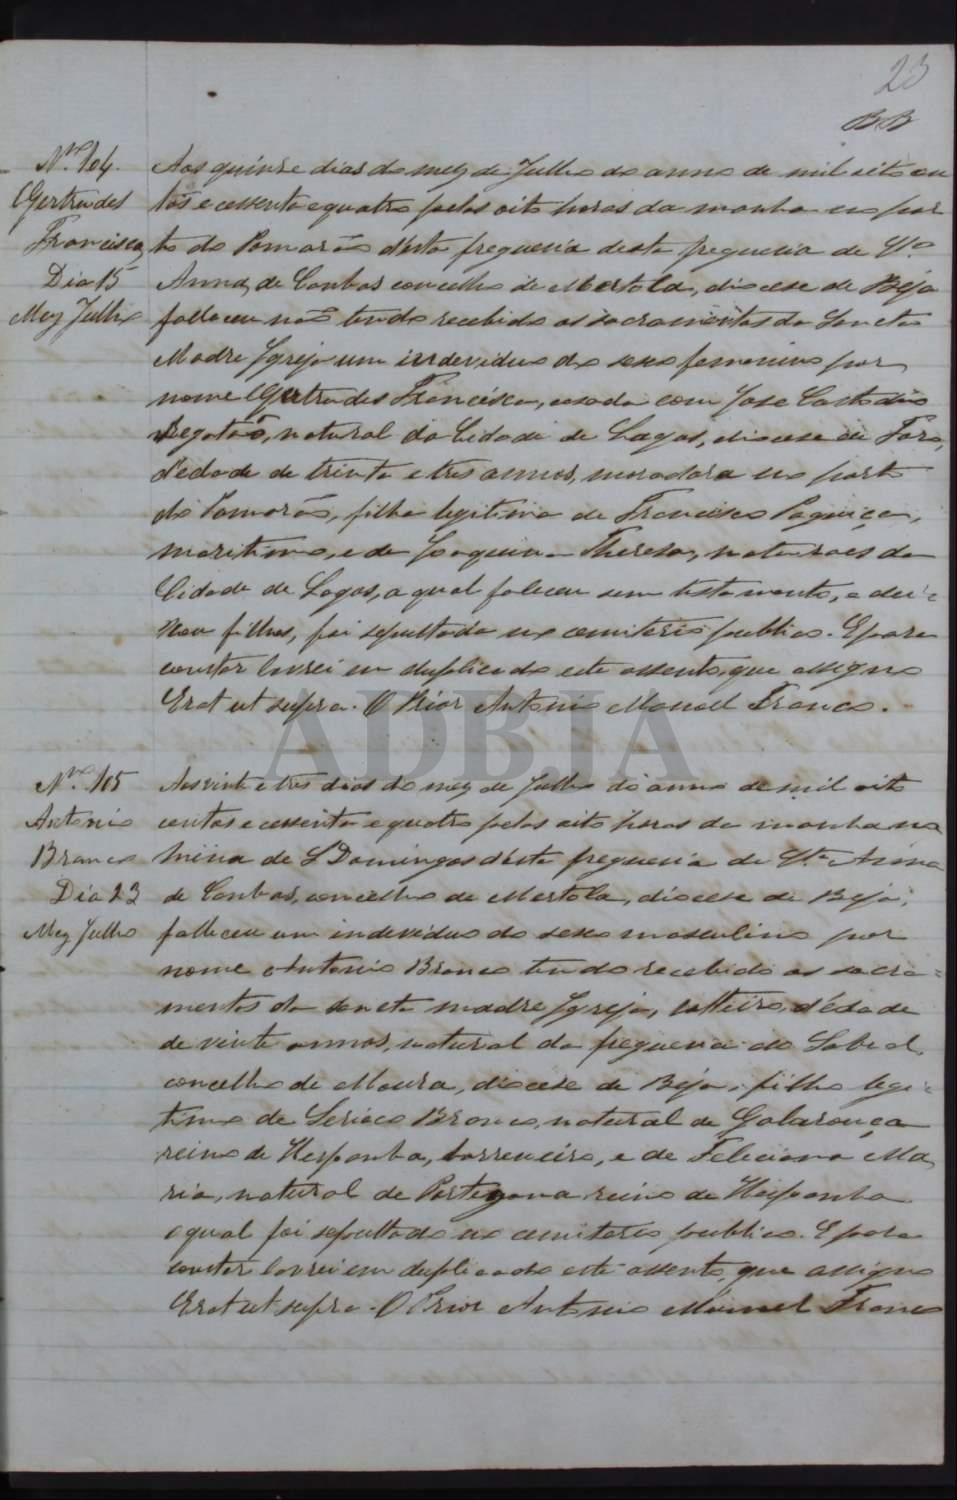 23
BB
Nº 104.
Gertrudes
Francisca,
Dia 15
Mez Julho
Aos quinze dias do mez de Julho do anno de mil oito cen
tos e cessenta e quatro pelas oito horas da manha no por
to do Pomarão d'esta freguesia desta freguesia de Stª
Anna, de Cambas concelho de Mertola, diocese de Beja
falleceu não tendo recebido os sacramentos da Sancta
Madre Igreja um indeviduo do sexo femenino por
nome Gertrudes Francisca, casada com Jose Custodio
natural da Cidade de Lagos, diocese de Faro,
d'edade de trinta e tres annos, moradora no porto
do Pomarão, filha legitima de Francisco
maritimo, e de Joaquina Thereza, naturaes da
Cidade de Lagos, a qual faleceu sem testamento, e dei-
xou filhos, foi sepultada no cemiterio publico. E para
constar lavrei em duplicado este assento, que assigno
Erat ut supra. O Prior Antonio Manoel Franco.
ADBJA
Nº 105
Antonio
Branco
Dia 23
Mez Julho
Aos vinte e tres dias do mez de Julho do anno de mil oito
centos e cessenta e quatro pelas oito horas da manha na
mina de S Domingos d'esta freguesia de Stª Anna
de Cambas, concelho de Mertola, diocese de Beja,
falleceu um indeveduo do sexo masculino por
nome Antonio Branco tendo recebido os sacra-
mentos da sancta madre Igreja, solteiro, d'edade
de vinte annos, natural da freguesia do Sobral,
concelho de Moura, diocese de Beja, filho legi-
timo de Branco, natural de
reino de Hespanha, e de Feliciana Ma
ria, natural de reino de Hespanha
o qual foi sepultado no cemiterio publico. E para
constar lavrei em duplicado este assento, que assigno
Erat ut supra. O Prior Antonio Manoel Franco